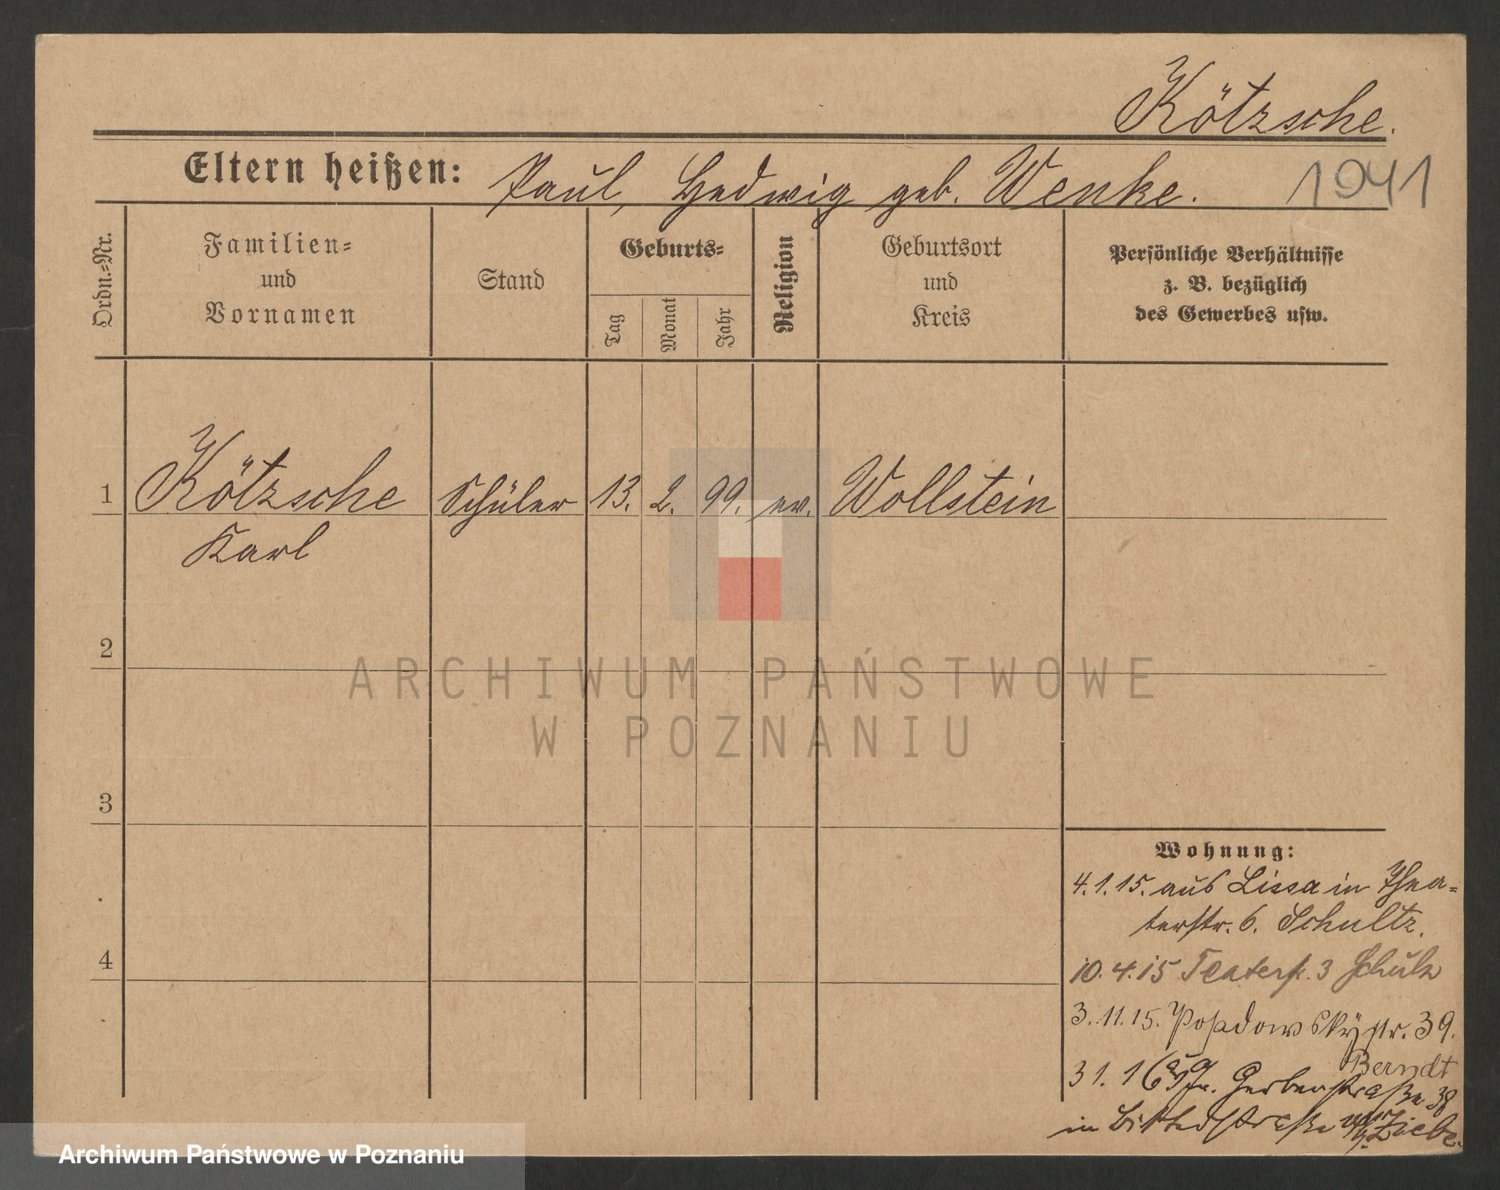 Kötzsche.
Eltern heißen: Paul, Hedwig geb. Wenke. 1941
Ordn.=Nr.
Familien=
und
Vornamen
Stand
Geburts=
Tag
Monat
Jahr
Religion
Geburtsort
und
Kreis
Persönliche Verhältnisse
z. B. bezüglich
des Gewerbes usw.
1 Kötzsche Schüler 13. 2. 99. ev. Wollstein
Karl
2
ARCHIWUM PAŃSTWOWE
W POZNANIU
3
4
Wohnung:
4.1.15. aus Lissa in Thea=
terstr. 6. Schultz.
10.4.15 Teaterstr. 3 Schulz
3.11.15. Posadowskystr. 39.
Berndt
31.1.16 Gerberstraße 38
in
Archiwum Państwowe w Poznaniu